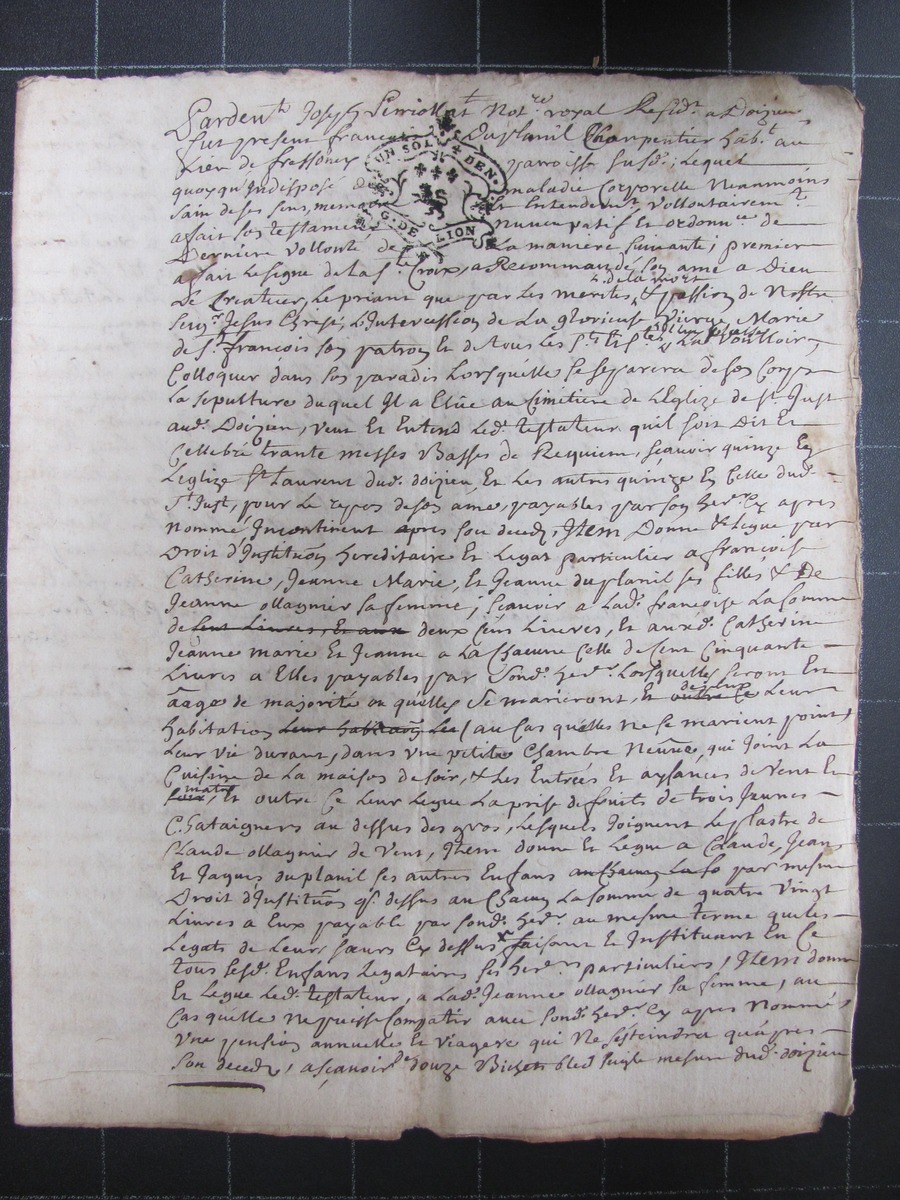 Pardevt Joseph Perriolat Notre royal Residt a Doizieu
fut present françois Duplanil Charpentier habt au
Lieu de fressoney paroisse susd; Lequel
quoyqu'Indisposé de maladie Corporelle Neanmoins
sain de ses sens, memoire Et Entendemt vollontairemt
a fait son testament nuncupatif Et ordonnce de
Derniere vollonté de La maniere suivante; premier
a fait Le signe de La ste Croix, a Recommandé son ame a Dieu
Le Createur, Le priant que par Les merites & de la mort passion de Nostre
seigr Jesus Christ, L'Intercession de La glorieuse Vierge Marie
de st françois son patron Et de tous Les sts Et stes Il Luy plaise La Voulloir
Colloquer dans son paradis Lorsquelle se separera de son Corps
La sepulture duquel Il a Elüe au Cimetiere de L'Eglize de st Just
aud. Doizieu, veut Et Entend Led. testateur quil soit Dit Et
Cellebré trante messes Basses de Requiem, sçavoir quinze En
L'eglize st Laurent dud. doizieu, Et Les autres quinze En Celle dud.
st Just, pour Le repos de son ame, payables par son herr Cy apres
Nommé Incontinent apres son deced, Item Donne & Legue par
Droit d'Institution hereditaire Et Legat particulier a françoise
Catherine, Jeanne Marie, Et Jeanne duplanil ses filles & De
Jeanne ollagnier sa femme; scauoir a Lad. françoise La somme
de cent Livres, Et aux deux Cens Livres, Et auxd. Catherine
Jeanne marie Et Jeanne a La Chacune Celle de Cent Cinquante
Livres a Elles payables par Sond. herr Lorsquelles seront En
aage de majorité ou quelles se marieront, Et outre Ce Leur
habitation Leur habitaon (au Cas quelles ne se marient point,
Leur vie durant, dans vne petite Chambre Neufue, qui Joint La
Cuisine de La maison de soir, & Les Entrées Et aysances de vent Et
soir, matin Et outre Ce Leur Legue La prise de fruits de trois Jeunes
Chataigners au dessus des gros, Lesquels Joignent Le plastre de
Claude ollagnier de vent, Item donne Et Legue a Claude, Jean
Et Jaques duplanil ses autres Enfans au Chacun La so par mesme
Droit d'Institution que dessus au Chacun La somme de quatre vingt
Livres a Eux payable par sond. herr au mesme terme que les
Legats de Leurs sœurs Cy dessus faisant Et Instituant En Ce
tous sesd. Enfans Legataires ses herers particuliers, Item donne
Et Legue Led. testateur, a Lad. Jeanne ollagnier sa femme, au
Cas quelle Ne puisse Compatir auec sond. herr Cy apres Nommé
Vne pension annuelle Et viagere qui Ne s'esteindra qu'apres
Son deced, a sçauoir de douze Bichets bled seigle mesure dud. doizieu
UN SOL 4 DEN.
G. DE LION